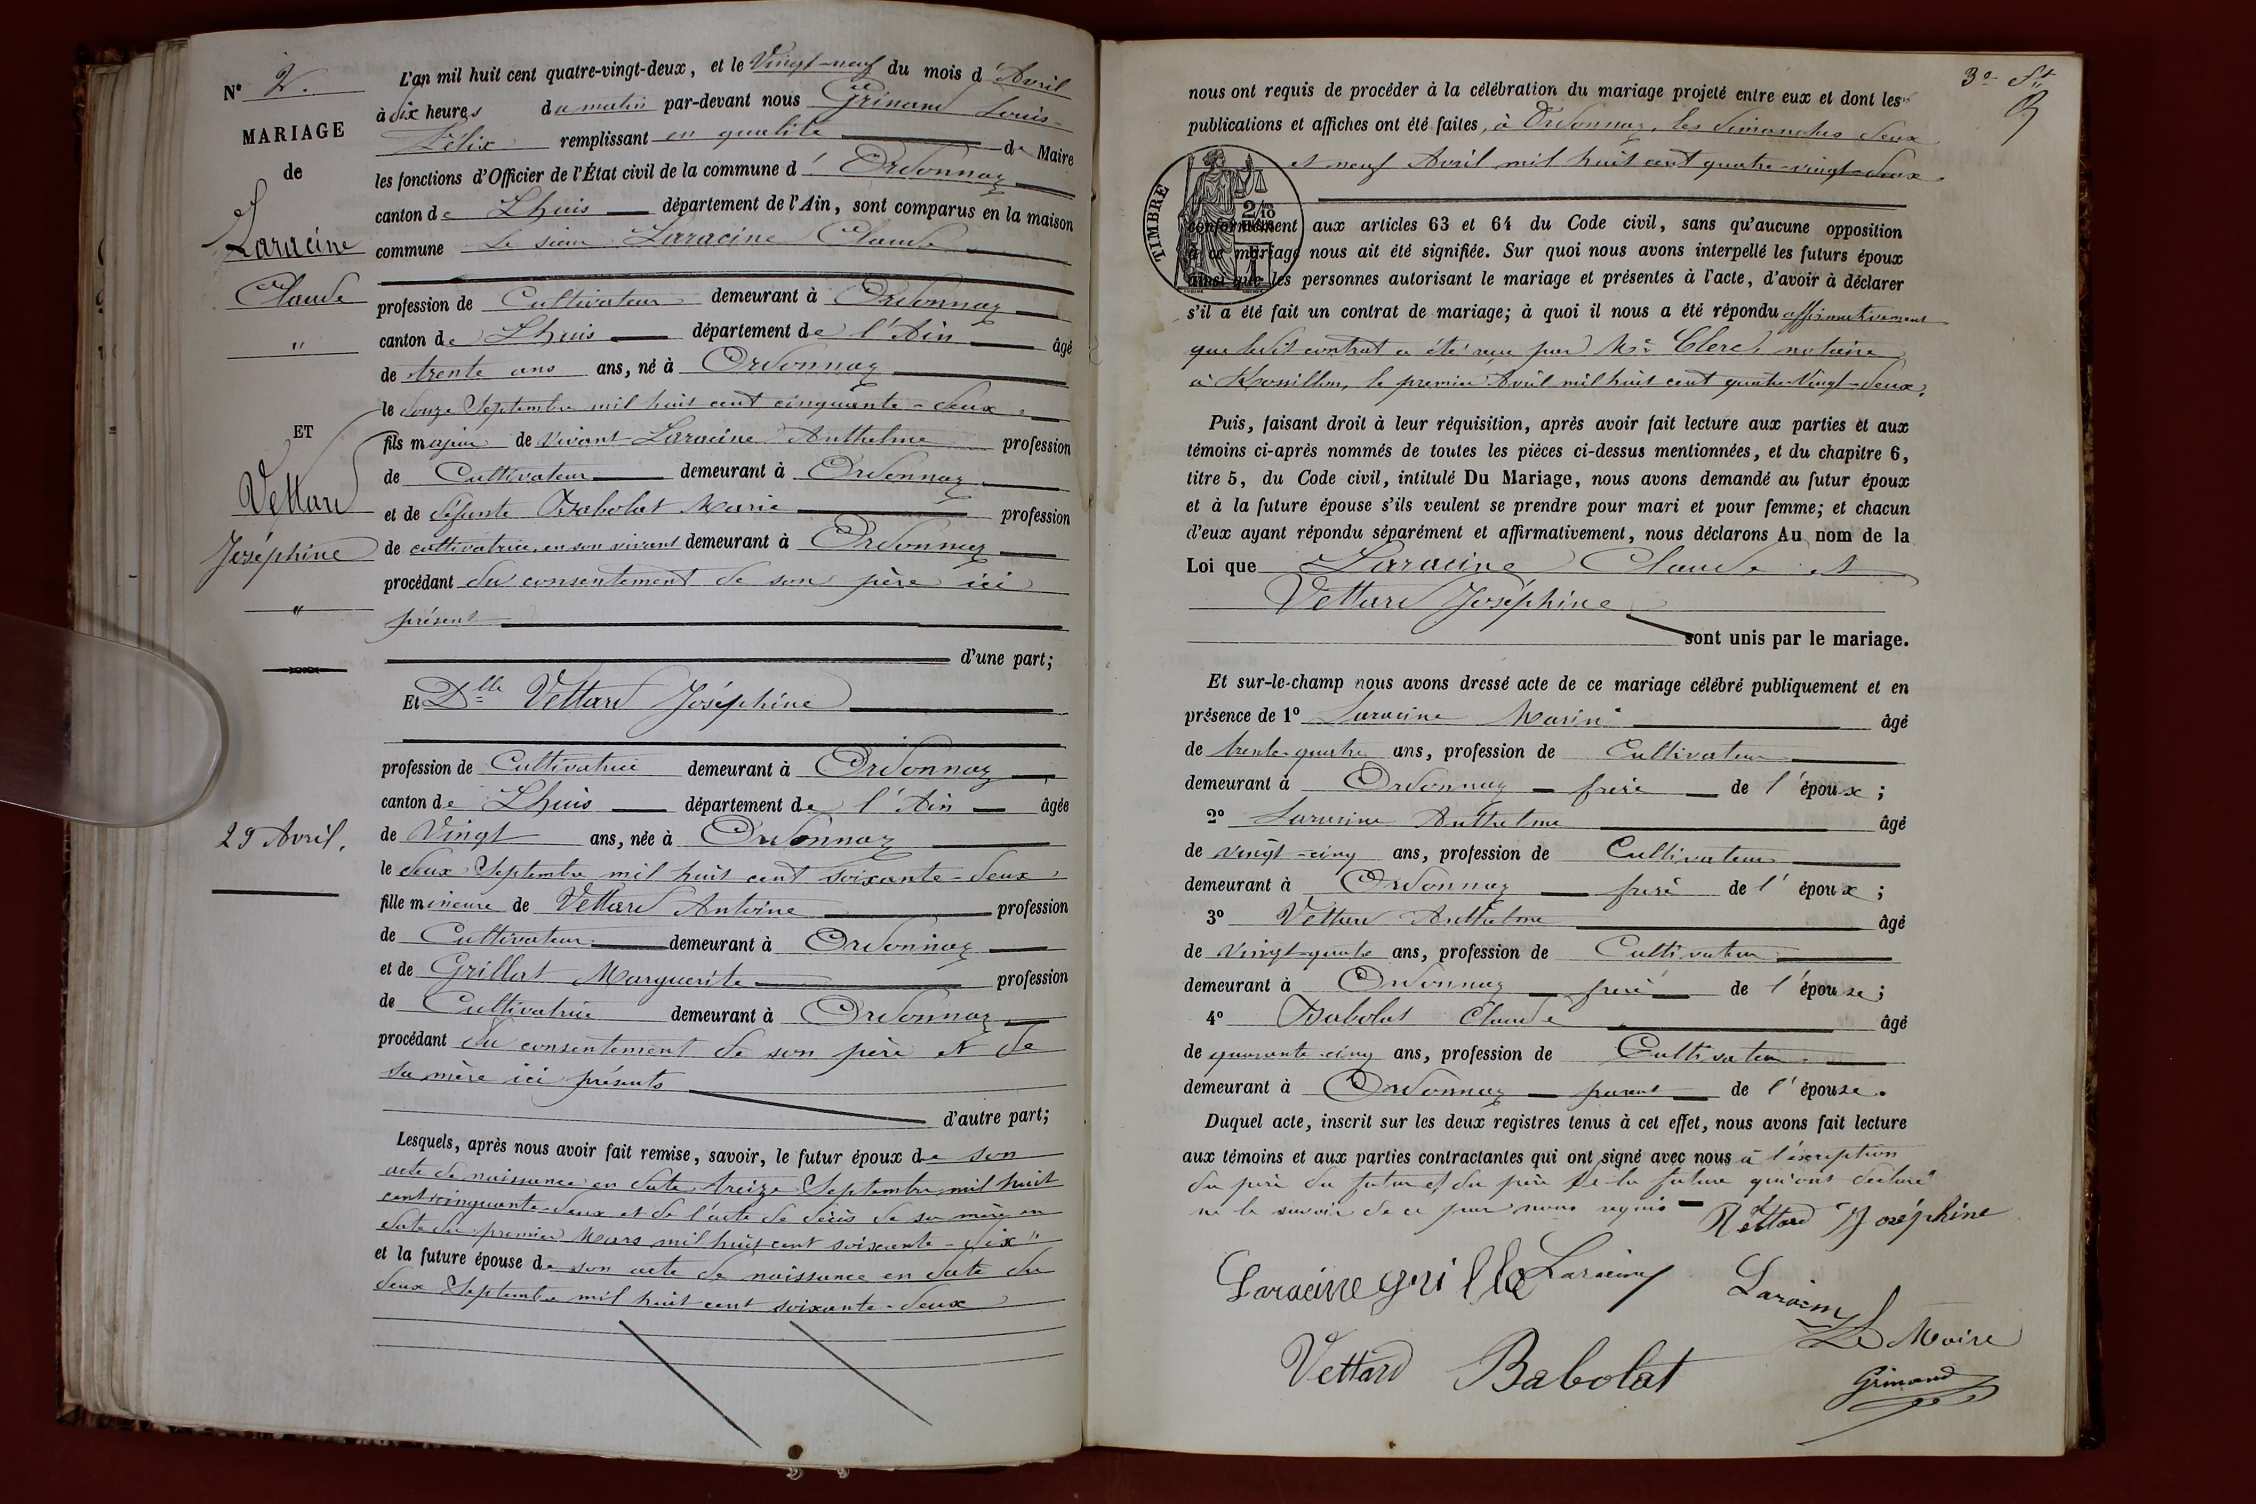 N° 2.
MARIAGE
de
Laracine
Claude
"
ET
Vettard
Joséphine
"
29 Avril.
L'an mil huit cent quatre-vingt-deux, et le Vingt-neuf du mois d'Avril
à dix heures du matin par-devant nous Grinand Louis-
Félix remplissant en qualité de Maire
les fonctions d'Officier de l'État civil de la commune d'Ordonnaz
canton de Lhuis département de l'Ain, sont comparus en la maison
commune Le sieur Laracine Claude
profession de Cultivateur demeurant à Ordonnaz
canton de Lhuis département de l'Ain âgé
de trente ans ans, né à Ordonnaz
le douze Septembre mil huit cent cinquante-deux,
fils majeur de vivant Laracine Anthelme profession
de Cultivateur demeurant à Ordonnaz
et de défunte Babolat Marie profession
de cultivatrice en son vivant demeurant à Ordonnaz
procédant du consentement de son père ici
présent
d'une part;
Et Dlle Vettard Joséphine
profession de Cultivatrice demeurant à Ordonnaz
canton de Lhuis département de l'Ain âgée
de Vingt ans, née à Ordonnaz
le deux Septembre mil huit cent soixante-deux,
fille mineure de Vettard Antoine profession
de Cultivateur demeurant à Ordonnaz
et de Grillat Marguerite profession
de Cultivatrice demeurant à Ordonnaz
procédant du consentement de son père et de
sa mère ici présents
d'autre part;
Lesquels, après nous avoir fait remise, savoir, le futur époux de son
acte de naissance en date treize Septembre mil huit
cent cinquante-deux et de l'acte de décès de sa mère en
date du premier Mars mil huit cent soixante-dix"
et la future épouse de son acte de naissance en date du
deux Septembre mil huit cent soixante-deux
3e
nous ont requis de procéder à la célébration du mariage projeté entre eux et dont les
publications et affiches ont été faites, à Ordonnaz, les dimanches deux
et neuf Avril mil huit cent quatre-vingt-deux.
TIMBRE
2/10
conformément aux articles 63 et 64 du Code civil, sans qu'aucune opposition
à ce mariage nous ait été signifiée. Sur quoi nous avons interpellé les futurs époux
ainsi que les personnes autorisant le mariage et présentes à l'acte, d'avoir à déclarer
s'il a été fait un contrat de mariage; à quoi il nous a été répondu affirmativement
que ledit contrat a été reçu par Me Clerc, notaire
à Rossillon, le premier Avril mil huit cent quatre-vingt-deux.
Puis, faisant droit à leur réquisition, après avoir fait lecture aux parties et aux
témoins ci-après nommés de toutes les pièces ci-dessus mentionnées, et du chapitre 6,
titre 5, du Code civil, intitulé Du Mariage, nous avons demandé au futur époux
et à la future épouse s'ils veulent se prendre pour mari et pour femme; et chacun
d'eux ayant répondu séparément et affirmativement, nous déclarons Au nom de la
Loi que Laracine Claude et
Vettard Joséphine
sont unis par le mariage.
Et sur-le-champ nous avons dressé acte de ce mariage célébré publiquement et en
présence de 1° Laracine Marin âgé
de trente-quatre ans, profession de Cultivateur
demeurant à Ordonnaz frère de l'époux;
2° Laracine Anthelme âgé
de vingt-cinq ans, profession de Cultivateur
demeurant à Ordonnaz frère de l'époux;
3° Vettard Anthelme âgé
de vingt-quatre ans, profession de Cultivateur
demeurant à Ordonnaz frère de l'épouse;
4° Babolat Claude âgé
de quarante-cinq ans, profession de Cultivateur
demeurant à Ordonnaz parent de l'épouse.
Duquel acte, inscrit sur les deux registres tenus à cet effet, nous avons fait lecture
aux témoins et aux parties contractantes qui ont signé avec nous à l'exception
du père du futur et du père de la future qui ont déclaré
ne le savoir de ce par nous requis
Vettard Joséphine
Laracine Laracine Laracine
Le Maire
Vettard Babolat
Grinand